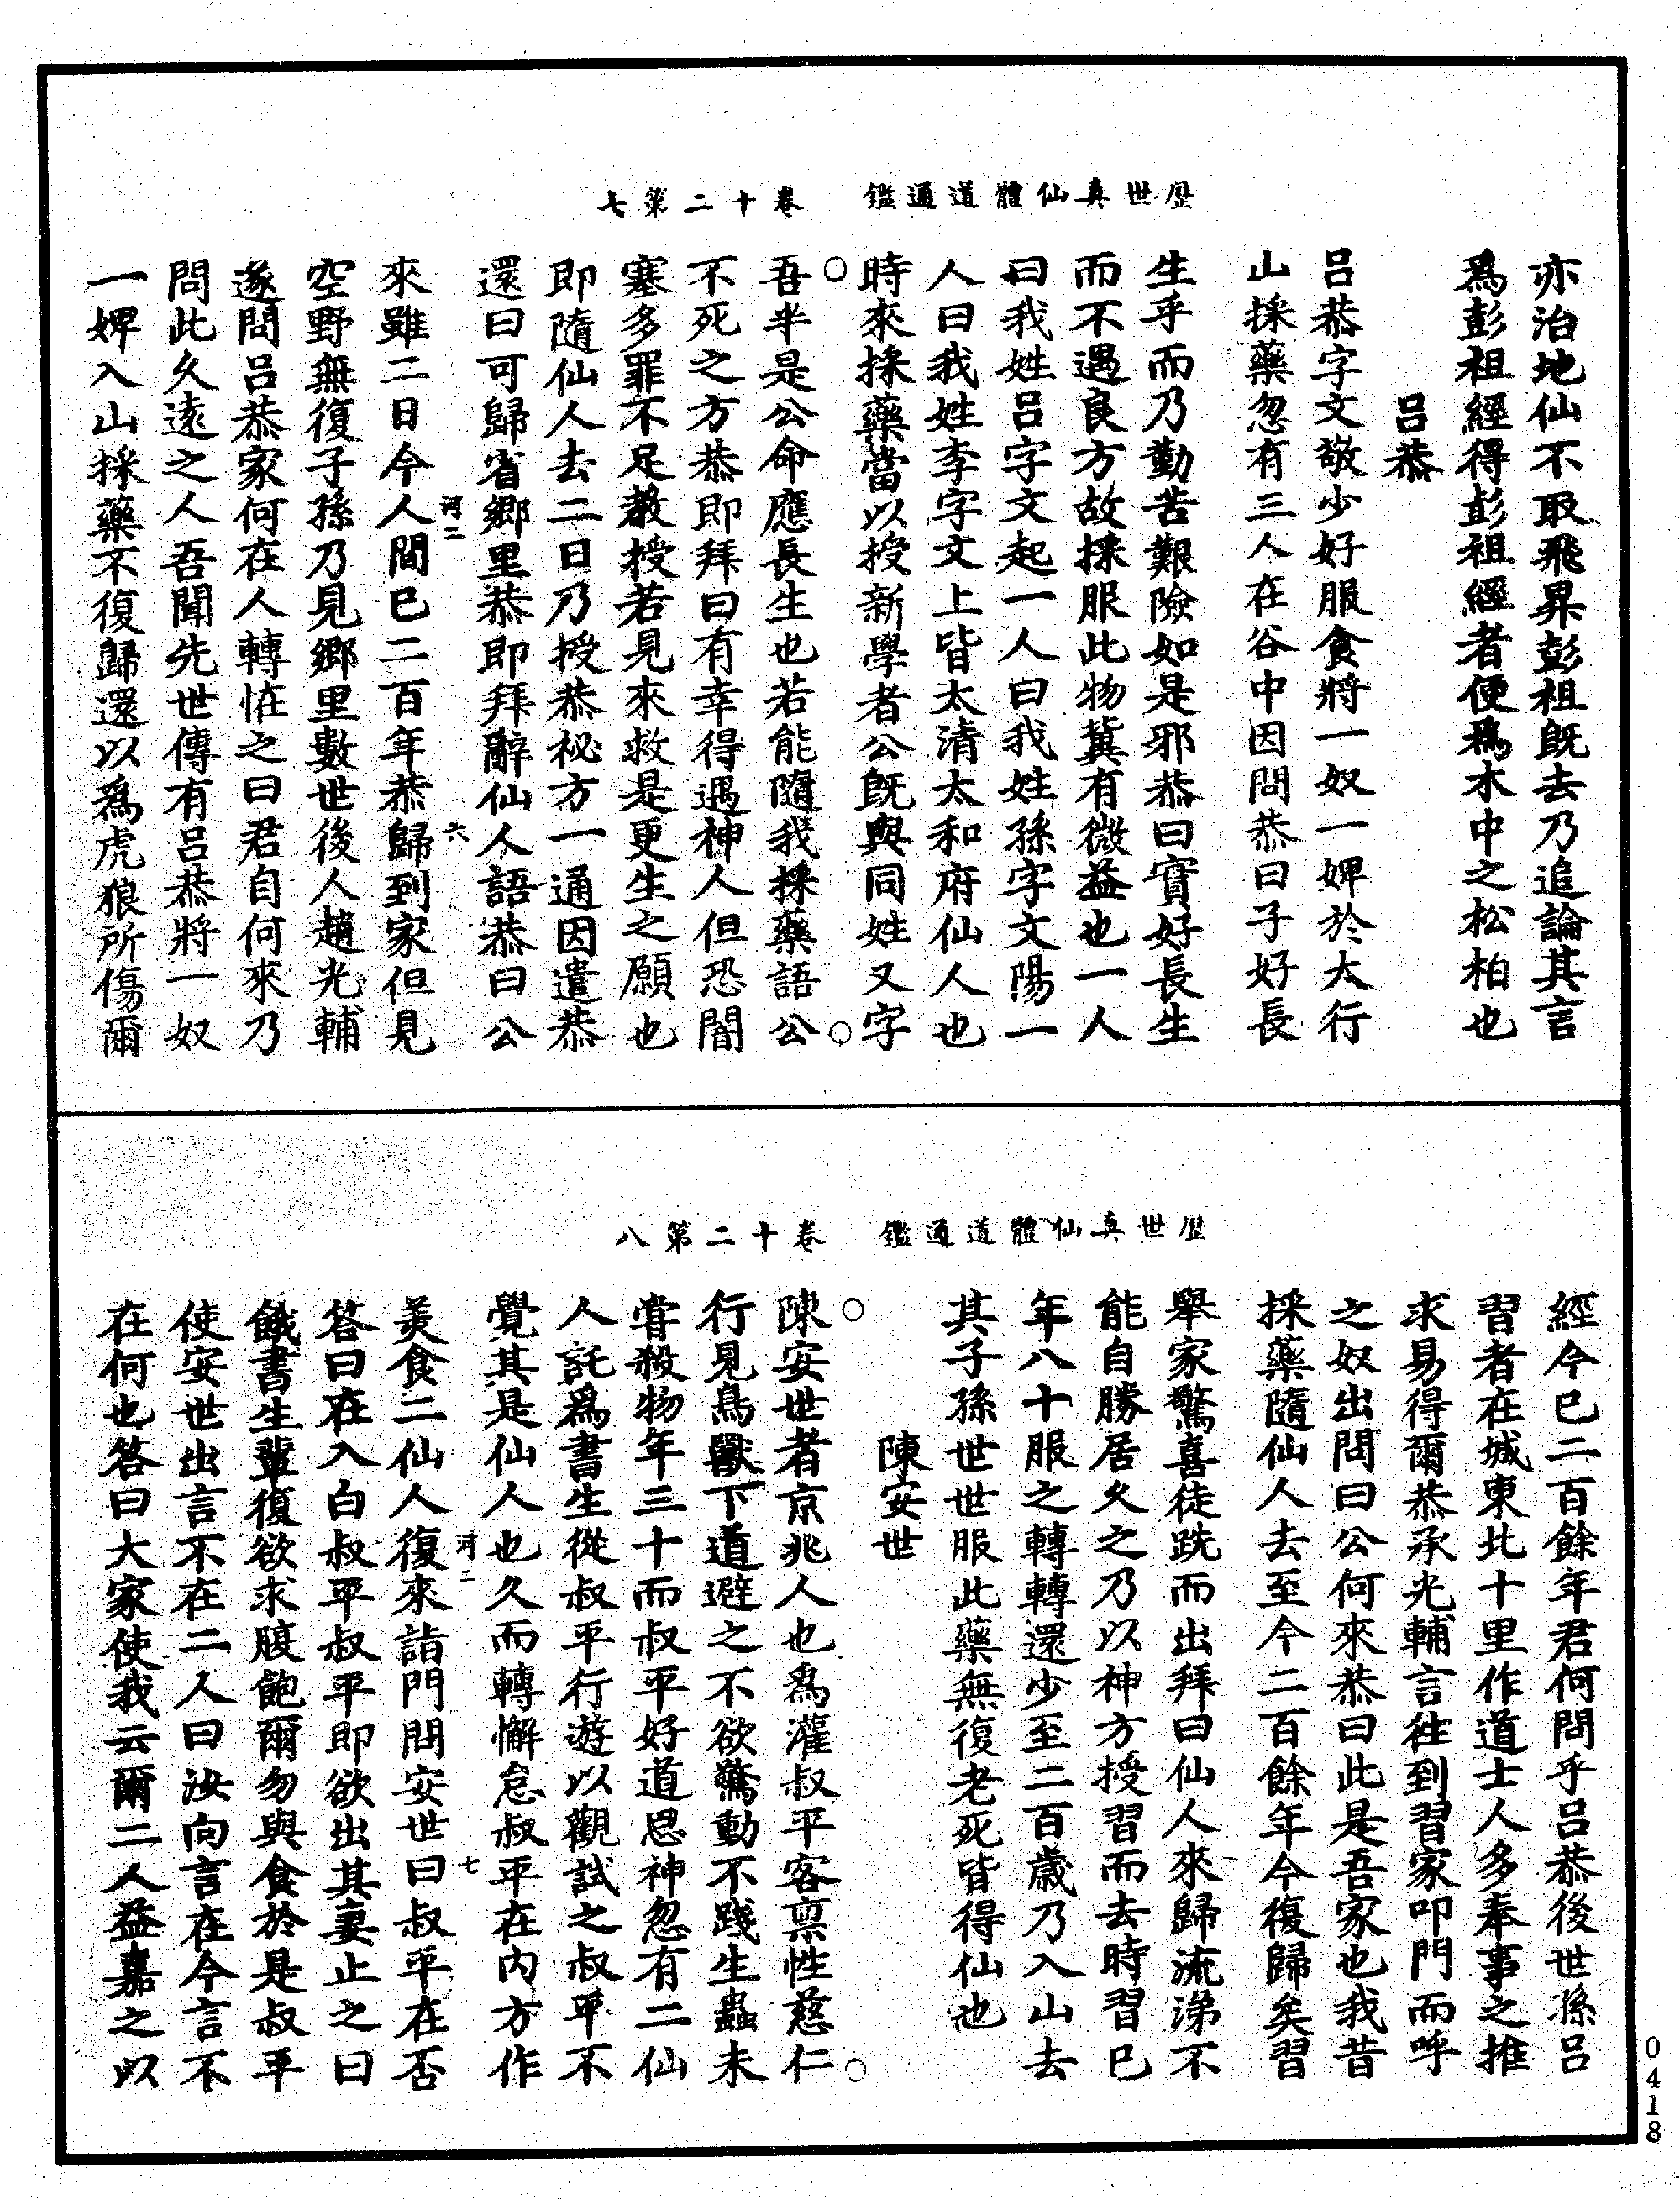 歷世真仙體道通鑑　卷十二第七
亦治地仙不取飛昇彭祖既去乃追論其言
爲彭祖經得彭祖經者便爲木中之松柏也
呂恭
呂恭字文敬少好服食將一奴一婢於太行
山採藥忽有三人在谷中因問恭曰子好長
生乎而乃勤苦艱險如是邪恭曰實好長生
而不遇良方故採服此物冀有微益也一人
曰我姓呂字文起一人曰我姓孫字文陽一
人曰我姓李字文上皆太清太和府仙人也
時來採藥當以授新學者公既與同姓又字
吾半是公命應長生也若能隨我採藥語公
不死之方恭即拜曰有幸得遇神人但恐闇
塞多罪不足教授若見來救是更生之願也
即隨仙人去二日乃授恭祕方一通因遣恭
還曰可歸省鄉里恭即拜辭仙人語恭曰公
河二　六
來雖二日今人間已二百年恭歸到家但見
空野無復子孫乃見鄉里數世後人趙光輔
遂問呂恭家何在人轉恠之曰君自何來乃
問此久遠之人吾聞先世傳有呂恭將一奴
一婢入山採藥不復歸還以爲虎狼所傷爾
歷世真仙體道通鑑　卷十二第八
經今已二百餘年君何問乎呂恭後世孫呂
習者在城東北十里作道士人多奉事之推
求易得爾恭承光輔言往到習家叩門而呼
之奴出問曰公何來恭曰此是吾家也我昔
採藥隨仙人去至今二百餘年今復歸矣習
舉家驚喜徒跣而出拜曰仙人來歸流涕不
能自勝居久之乃以神方授習而去時習已
年八十服之轉轉還少至二百歲乃入山去
其子孫世世服此藥無復老死皆得仙也
陳安世
陳安世者京兆人也爲灌叔平客稟性慈仁
行見鳥獸下道避之不欲驚動不踐生蟲未
甞殺物年三十而叔平好道思神忽有二仙
人託爲書生從叔平行遊以觀試之叔平不
覺其是仙人也久而轉懈怠叔平在內方作
河二　七
羙食二仙人復來詣門問安世曰叔平在否
答曰在入白叔平叔平即欲出其妻止之曰
餓書生輩復欲求腹飽爾勿與食於是叔平
使安世出言不在二人曰汝向言在今言不
在何也答曰大家使我云爾二人益嘉之以
0418